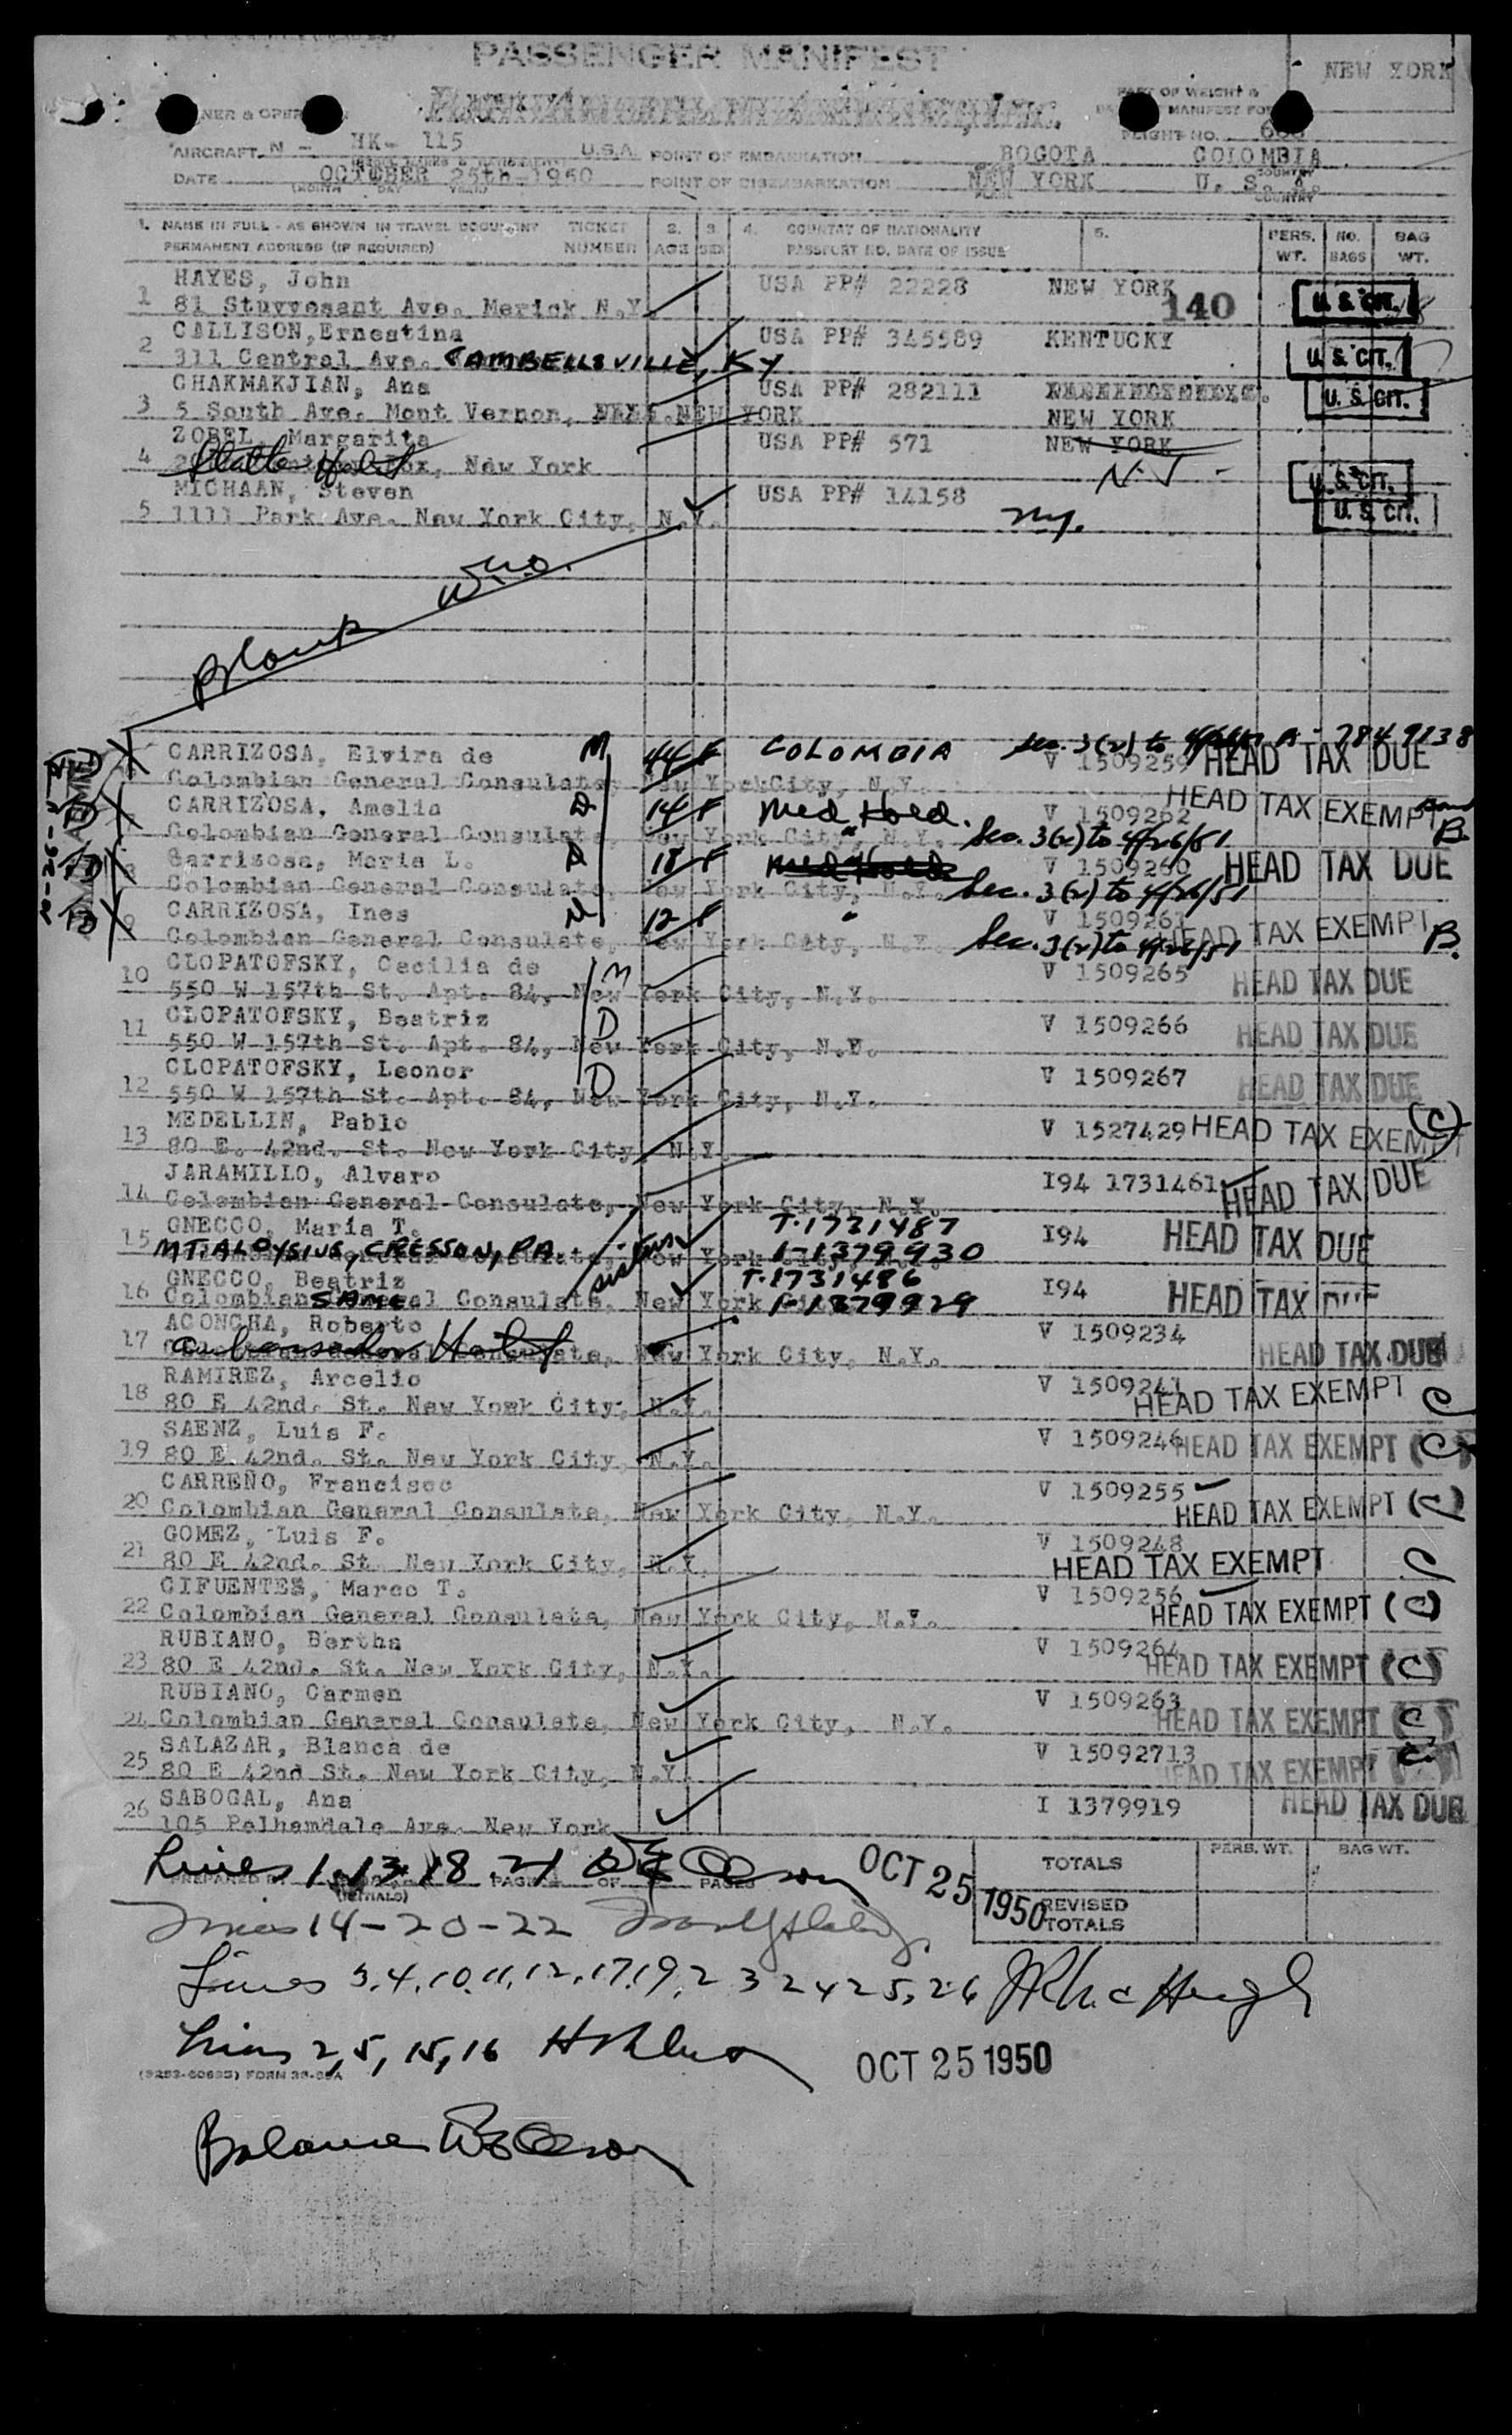 PASSENGER MANIFEST
NEW YORK
AIRCRAFT N - HK- 115 U.S.A. POINT OF EMBARKATION BOGOTA COLOMBIA
FLIGHT NO.
DATE OCTOBER 25th-1950 POINT OF DISEMBARKATION NEW YORK U. S. A.
1. NAME IN FULL - AS SHOWN IN TRAVEL DOCUMENT TICKET 2. 3. 4. COUNTRY OF NATIONALITY 5. PERS. NO. BAG
PERMANENT ADDRESS (IF REQUIRED) NUMBER AGE SEX PASSPORT NO. DATE OF ISSUE WT. BAGS WT.
HAYES, John USA PP# 22228 NEW YORK
1 81 Stuyvesant Ave. Merick N.Y. 140 U. S. CIT.
CALLISON, Ernestina USA PP# 345589 KENTUCKY
2 311 Central Ave. CAMBELLSVILLE, KY U. S. CIT.
CHAKMAKJIAN, Ana USA PP# 282111
3 5 South Ave. Mont Vernon, NEW YORK NEW YORK U. S. CIT.
ZOBEL, Margarita USA PP# 571 NEW YORK
4 New York N.J - U. S. CIT.
MICHAAN, Steven USA PP# 14158
5 1111 Park Ave. New York City, N.Y. N.Y. U. S. CIT.
Blank
CARRIZOSA, Elvira de M 44 F COLOMBIA Sec. 3(2) to A-7849138
Colombian General Consulate, New York City, N.Y. V 1509259 HEAD TAX DUE
CARRIZOSA, Amelia D 14 F Med Hold. V 1509262 HEAD TAX EXEMPT
Colombian General Consulate, New York City, N.Y. Sec. 3(2) to 4/26/51 B
Carrizosa, Maria L. D 18 F V 1509260 HEAD TAX DUE
Colombian General Consulate, New York City, N.Y. Sec. 3(2) to 4/26/51
CARRIZOSA, Ines D 12 F " V 1509261 HEAD TAX EXEMPT
9 Colombian General Consulate, New York City, N.Y. Sec. 3(2) to 4/26/51 B.
CLOPATOFSKY, Cecilia de M V 1509265 HEAD TAX DUE
10 550 W 157th St. Apt. 84, New York City, N.Y.
CLOPATOFSKY, Beatriz D V 1509266 HEAD TAX DUE
11 550 W 157th St. Apt. 84, New York City, N.Y.
CLOPATOFSKY, Leonor D V 1509267 HEAD TAX DUE
12 550 W 157th St. Apt. 84, New York City, N.Y.
MEDELLIN, Pablo V 1527429 HEAD TAX EXEMPT (C)
13 80 E. 42nd. St. New York City, N.Y.
JARAMILLO, Alvaro I94 1731461 HEAD TAX DUE
14 Colombian General Consulate, New York City, N.Y.
GNECCO, Maria T. T-1731487 I94 HEAD TAX DUE
15 MT. ALOYSIUS, CRESSON, PA. sisters 1-1379930
GNECCO, Beatriz T-1731486 I94 HEAD TAX DUE
16 Colombian General Consulate, New York SAME 1-1379929
ACONCHA, Roberto V 1509234
17 Ambassador Hotel Consulate, New York City, N.Y. HEAD TAX DUE
RAMIREZ, Arcelio V 1509241
18 80 E 42nd. St. New York City, N.Y. HEAD TAX EXEMPT C
SAENZ, Luis F. V 1509246 HEAD TAX EXEMPT (C)
19 80 E 42nd. St. New York City, N.Y.
CARREÑO, Francisco V 1509255
20 Colombian General Consulate, New York City, N.Y. HEAD TAX EXEMPT (C)
GOMEZ, Luis F. V 1509248
21 80 E 42nd. St. New York City, N.Y. HEAD TAX EXEMPT C
CIFUENTES, Marco T. V 1509256
22 Colombian General Consulate, New York City, N.Y. HEAD TAX EXEMPT (C)
RUBIANO, Bertha V 1509264
23 80 E 42nd. St. New York City, N.Y. HEAD TAX EXEMPT (C)
RUBIANO, Carmen V 1509263
24 Colombian General Consulate, New York City, N.Y. HEAD TAX EXEMPT (C)
SALAZAR, Blanca de V 15092713
25 80 E 42nd St. New York City, N.Y. HEAD TAX EXEMPT C
SABOGAL, Ana I 1379919 HEAD TAX DUE
26 105 Pelhamdale Ave. New York
Lines 1.13.18.21 OCT 25 1950
PREPARED BY (INITIALS) PAGE OF PAGES
TOTALS PERS. WT. BAG WT.
REVISED TOTALS
Lines 14-20-22
Lines 3.4.10.11.12.17.19.23 24 25.26
Lines 2,5,15,16 OCT 25 1950
Balance